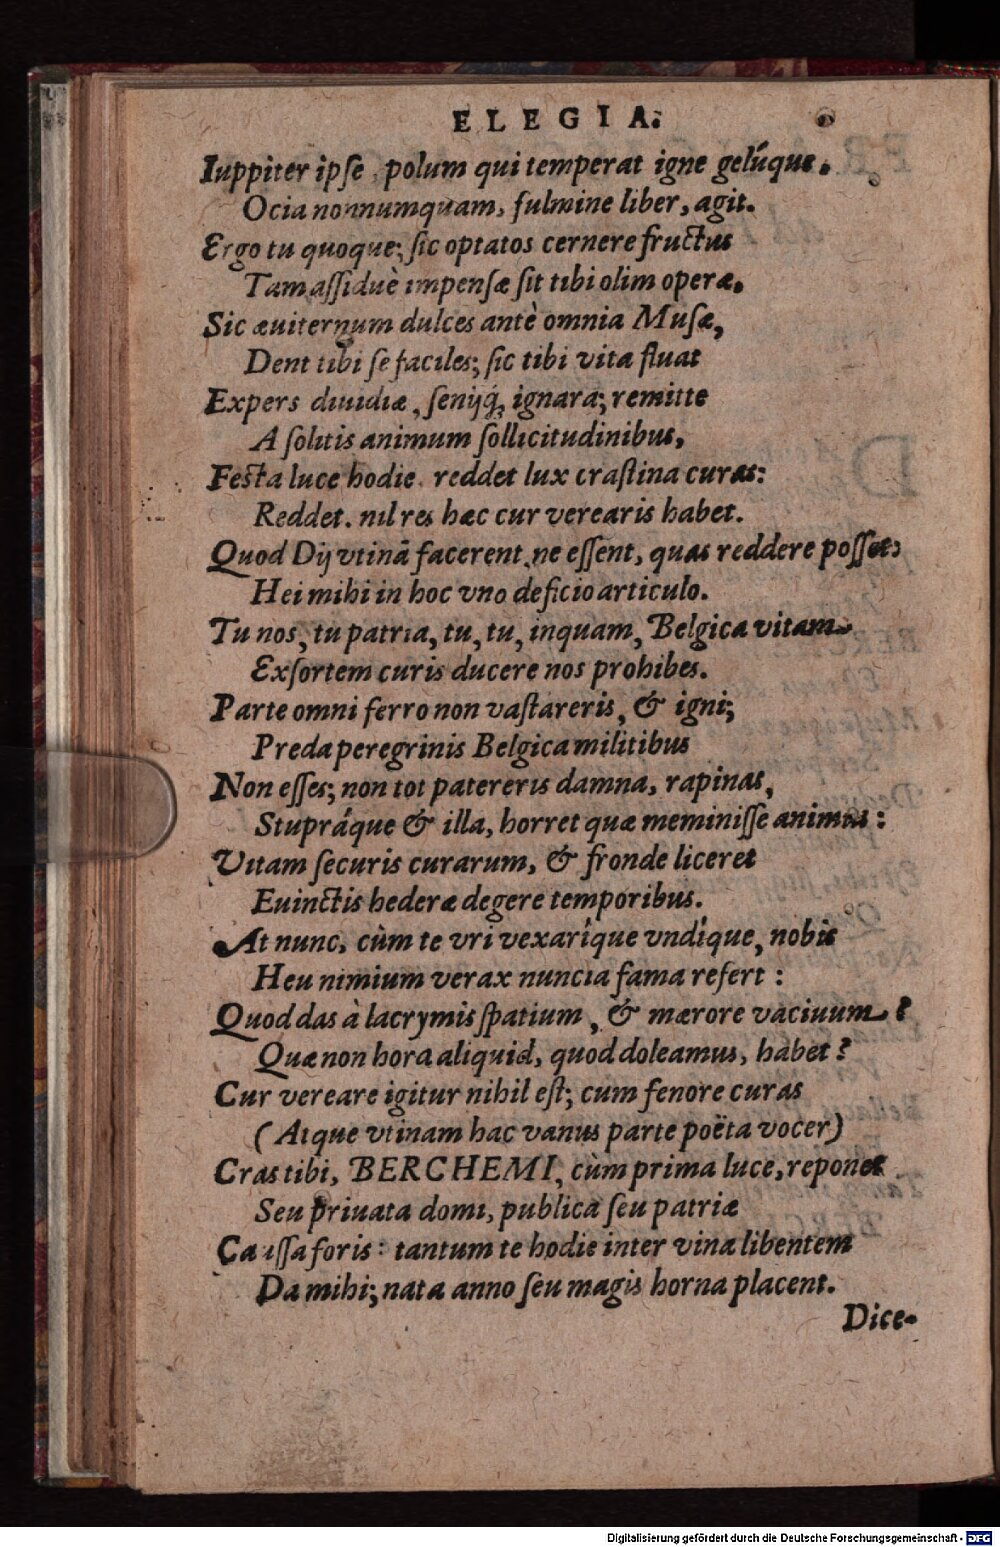 ELEGIA.
Iuppiter ipse polum qui temperat igne gelúque.
Ocia nonnumquam, fulmine liber, agit.
Ergo tu quoque; sic optatos cernere fructus
Tam assiduè impensæ sit tibi olim operæ.
Sic æuiternum dulces antè omnia Musæ,
Dent tibi se faciles; sic tibi vita fluat
Expers inuidiæ, senijq́, ignara; remitte
A solitis animum sollicitudinibus,
Festa luce hodie. reddet lux crastina curas:
Reddet. nil res hæc cur verearis habet.
Quod Dij vtinã facerent, ne essent, quas reddere posset:
Hei mihi in hoc vno deficio articulo.
Tu nos, tu patria, tu, tu, inquam, Belgica vitam
Exsortem curis ducere nos prohibes.
Parte omni ferro non vastareris, & igni;
Preda peregrinis Belgica militibus
Non esses; non tot patereris damna, rapinas,
Stupráque & illa, horret quæ meminisse animus:
Vitam securis curarum, & fronde liceret
Euinctis hederæ degere temporibus.
At nunc, cùm te vri vexaríque vndíque, nobis
Heu nimium verax nuncia fama refert:
Quod das à lacrymis spatium, & mærore vaciuum?
Quæ non hora aliquid, quod doleamus, habet?
Cur vereare igitur nihil est; cum fenore curas
(Atque vtinam hac vanus parte poëta vocer)
Cras tibi, BERCHEMI, cùm prima luce, reponet
Seu priuata domi, publica seu patriæ
Caussa foris: tantum te hodie inter vina libentem
Da mihi; nata anno seu magis horna placent.
Dice-
Digitalisierung gefördert durch die Deutsche Forschungsgemeinschaft - DFG